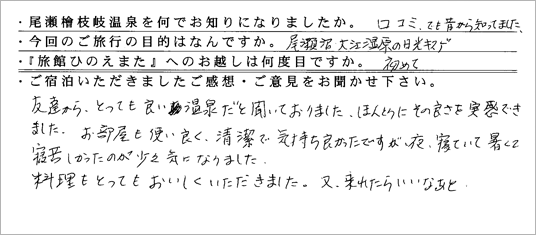 ・尾瀬檜枝岐温泉を何でお知りになりましたか。 口コミ、でも昔から知ってました、
・今回のご旅行の目的はなんですか。 尾瀬沼 大江湿原の日光キスゲ
・『旅館ひのえまた』へのお越しは何度目ですか。 初めて
・ご宿泊いただきましたご感想・ご意見をお聞かせ下さい。
友達から、とっても良い温泉だと聞いておりました、ほんとうにその良さを実感でき
ました。 お部屋も使い良く、清潔で気持ち良かったですが、夜、寝ていて暑くて
寝苦しかったのが少々気になりました.
料理もとってもおいしくいただきました。又、来れたらいいなあと.